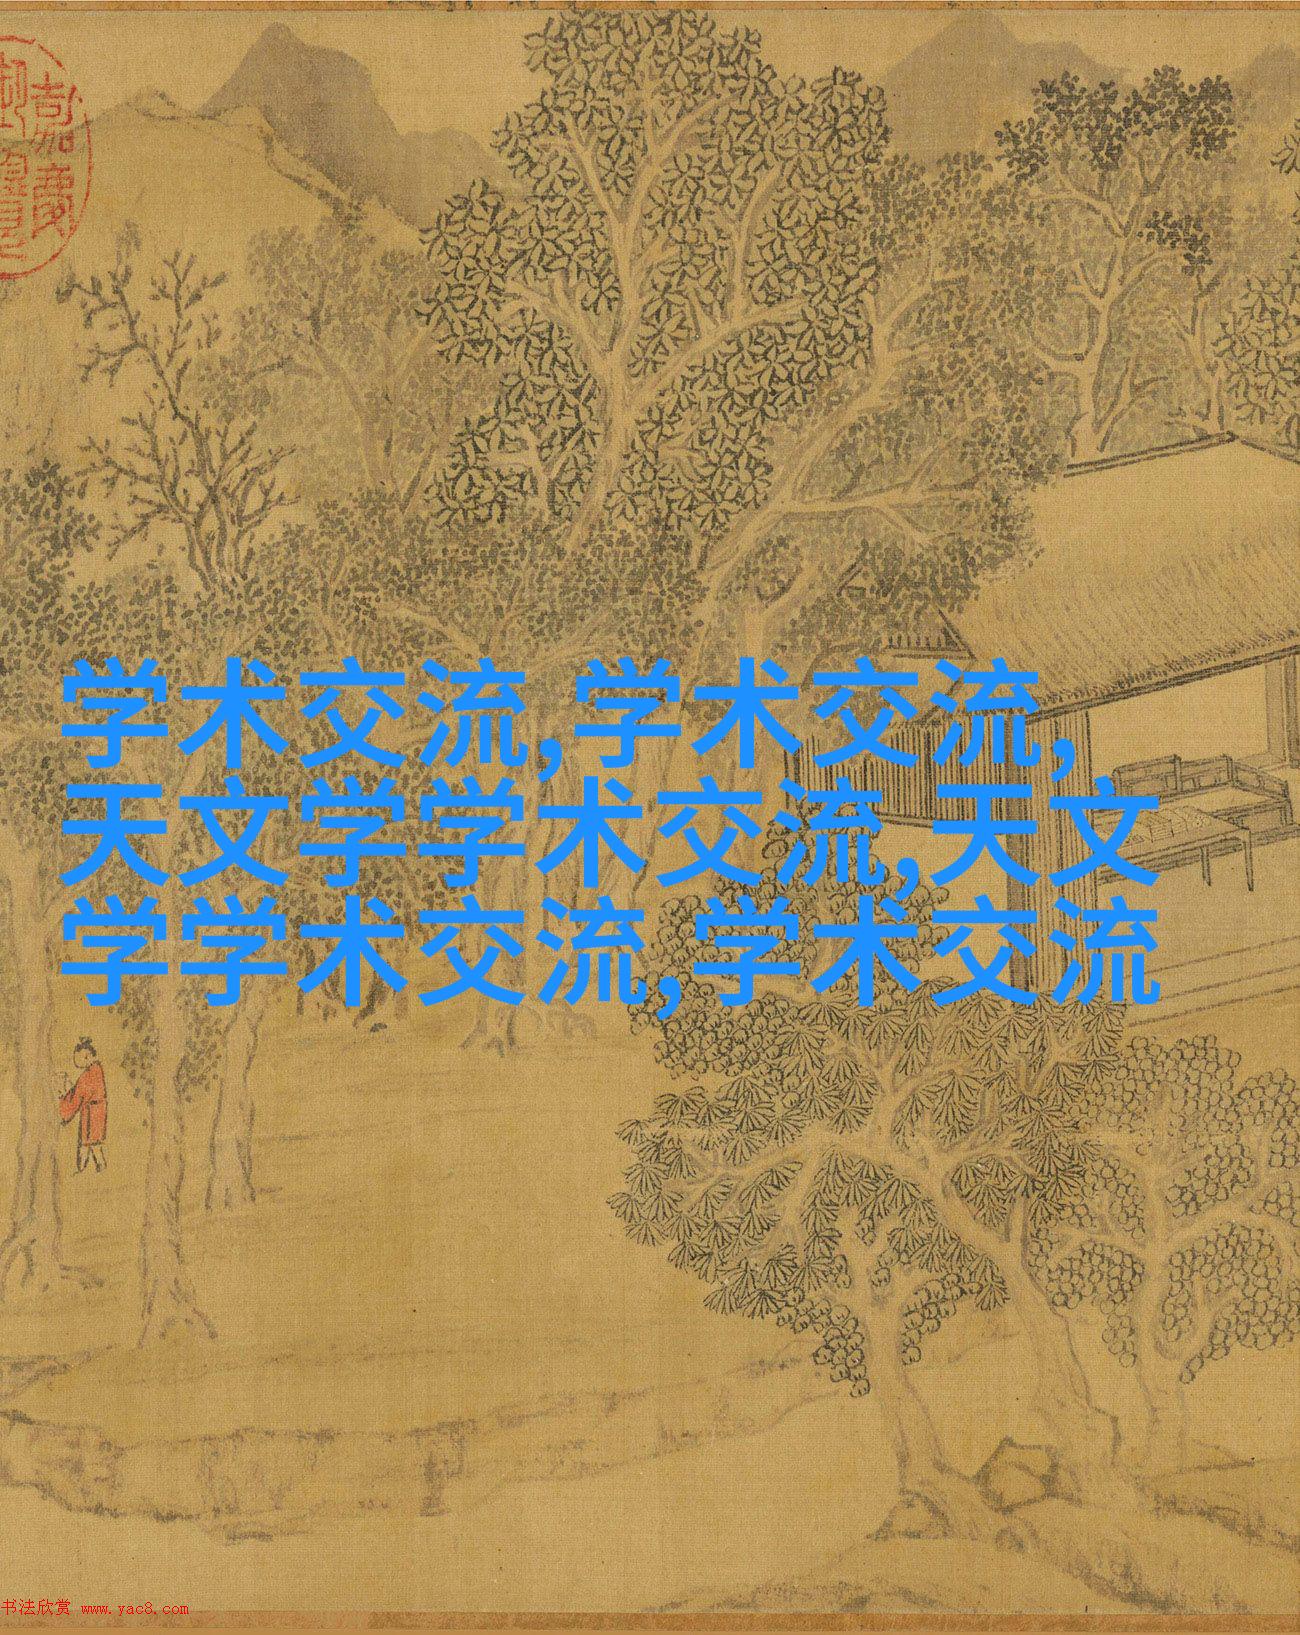 嘉慶
学术交流,学术交流,
天文学学术交流,天文
学学术交流,学术交流
书法欣赏 www.yac8.com